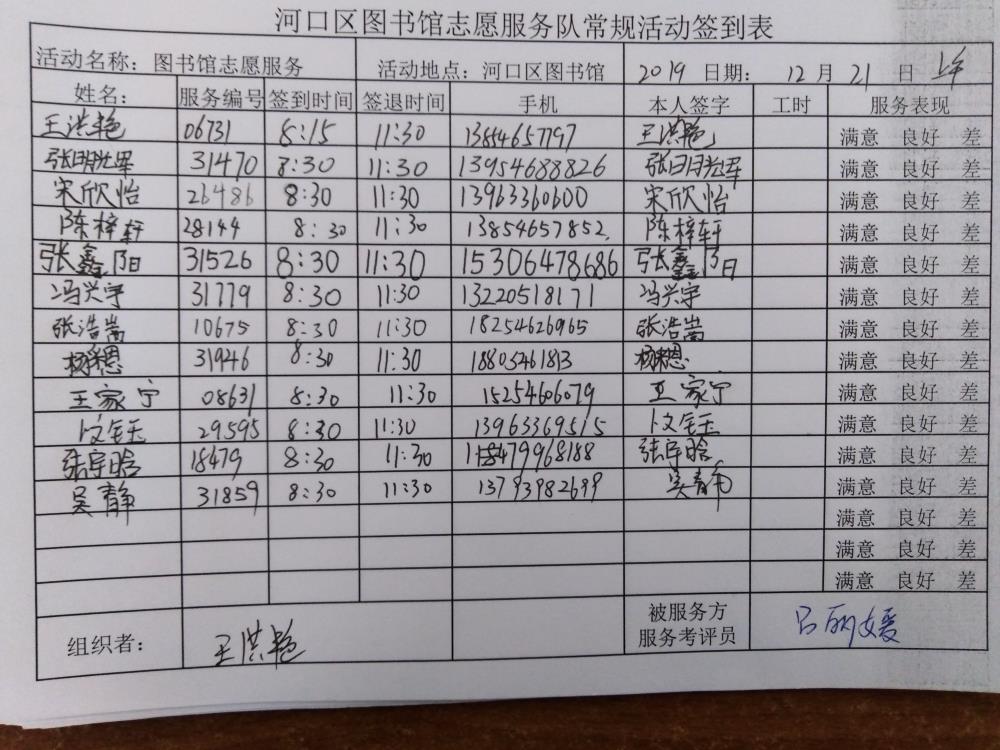 河口区图书馆志愿服务队常规活动签到表
活动名称：图书馆志愿服务 活动地点：河口区图书馆 2019 日期： 12 月 21 日 上午
姓名： 服务编号 签到时间 签退时间 手机 本人签字 工时 服务表现
王洪艳 06731 8:15 11:30 13844657797 王洪艳 满意 良好 差
张明光军 31470 8:30 11:30 13954688826 张明光军 满意 良好 差
宋欣怡 26486 8:30 11:30 13963360600 宋欣怡 满意 良好 差
陈梓轩 28144 8:30 11:30 13854657852 陈梓轩 满意 良好 差
张鑫阳 31526 8:30 11:30 15306478686 张鑫阳 满意 良好 差
冯兴宇 31779 8:30 11:30 13220518171 冯兴宇 满意 良好 差
张浩嵩 10675 8:30 11:30 18254626965 张浩嵩 满意 良好 差
31946 8:30 11:30 18805461813 满意 良好 差
王家宁 08631 8:30 11:30 15254606079 王家宁 满意 良好 差
29595 8:30 11:30 13963369515 满意 良好 差
张宇晗 18479 8:30 11:30 张宇晗 满意 良好 差
吴静 31859 8:30 11:30 13793982699 吴静 满意 良好 差
满意 良好 差
满意 良好 差
满意 良好 差
组织者： 王洪艳 被服务方 吕丽媛
服务考评员